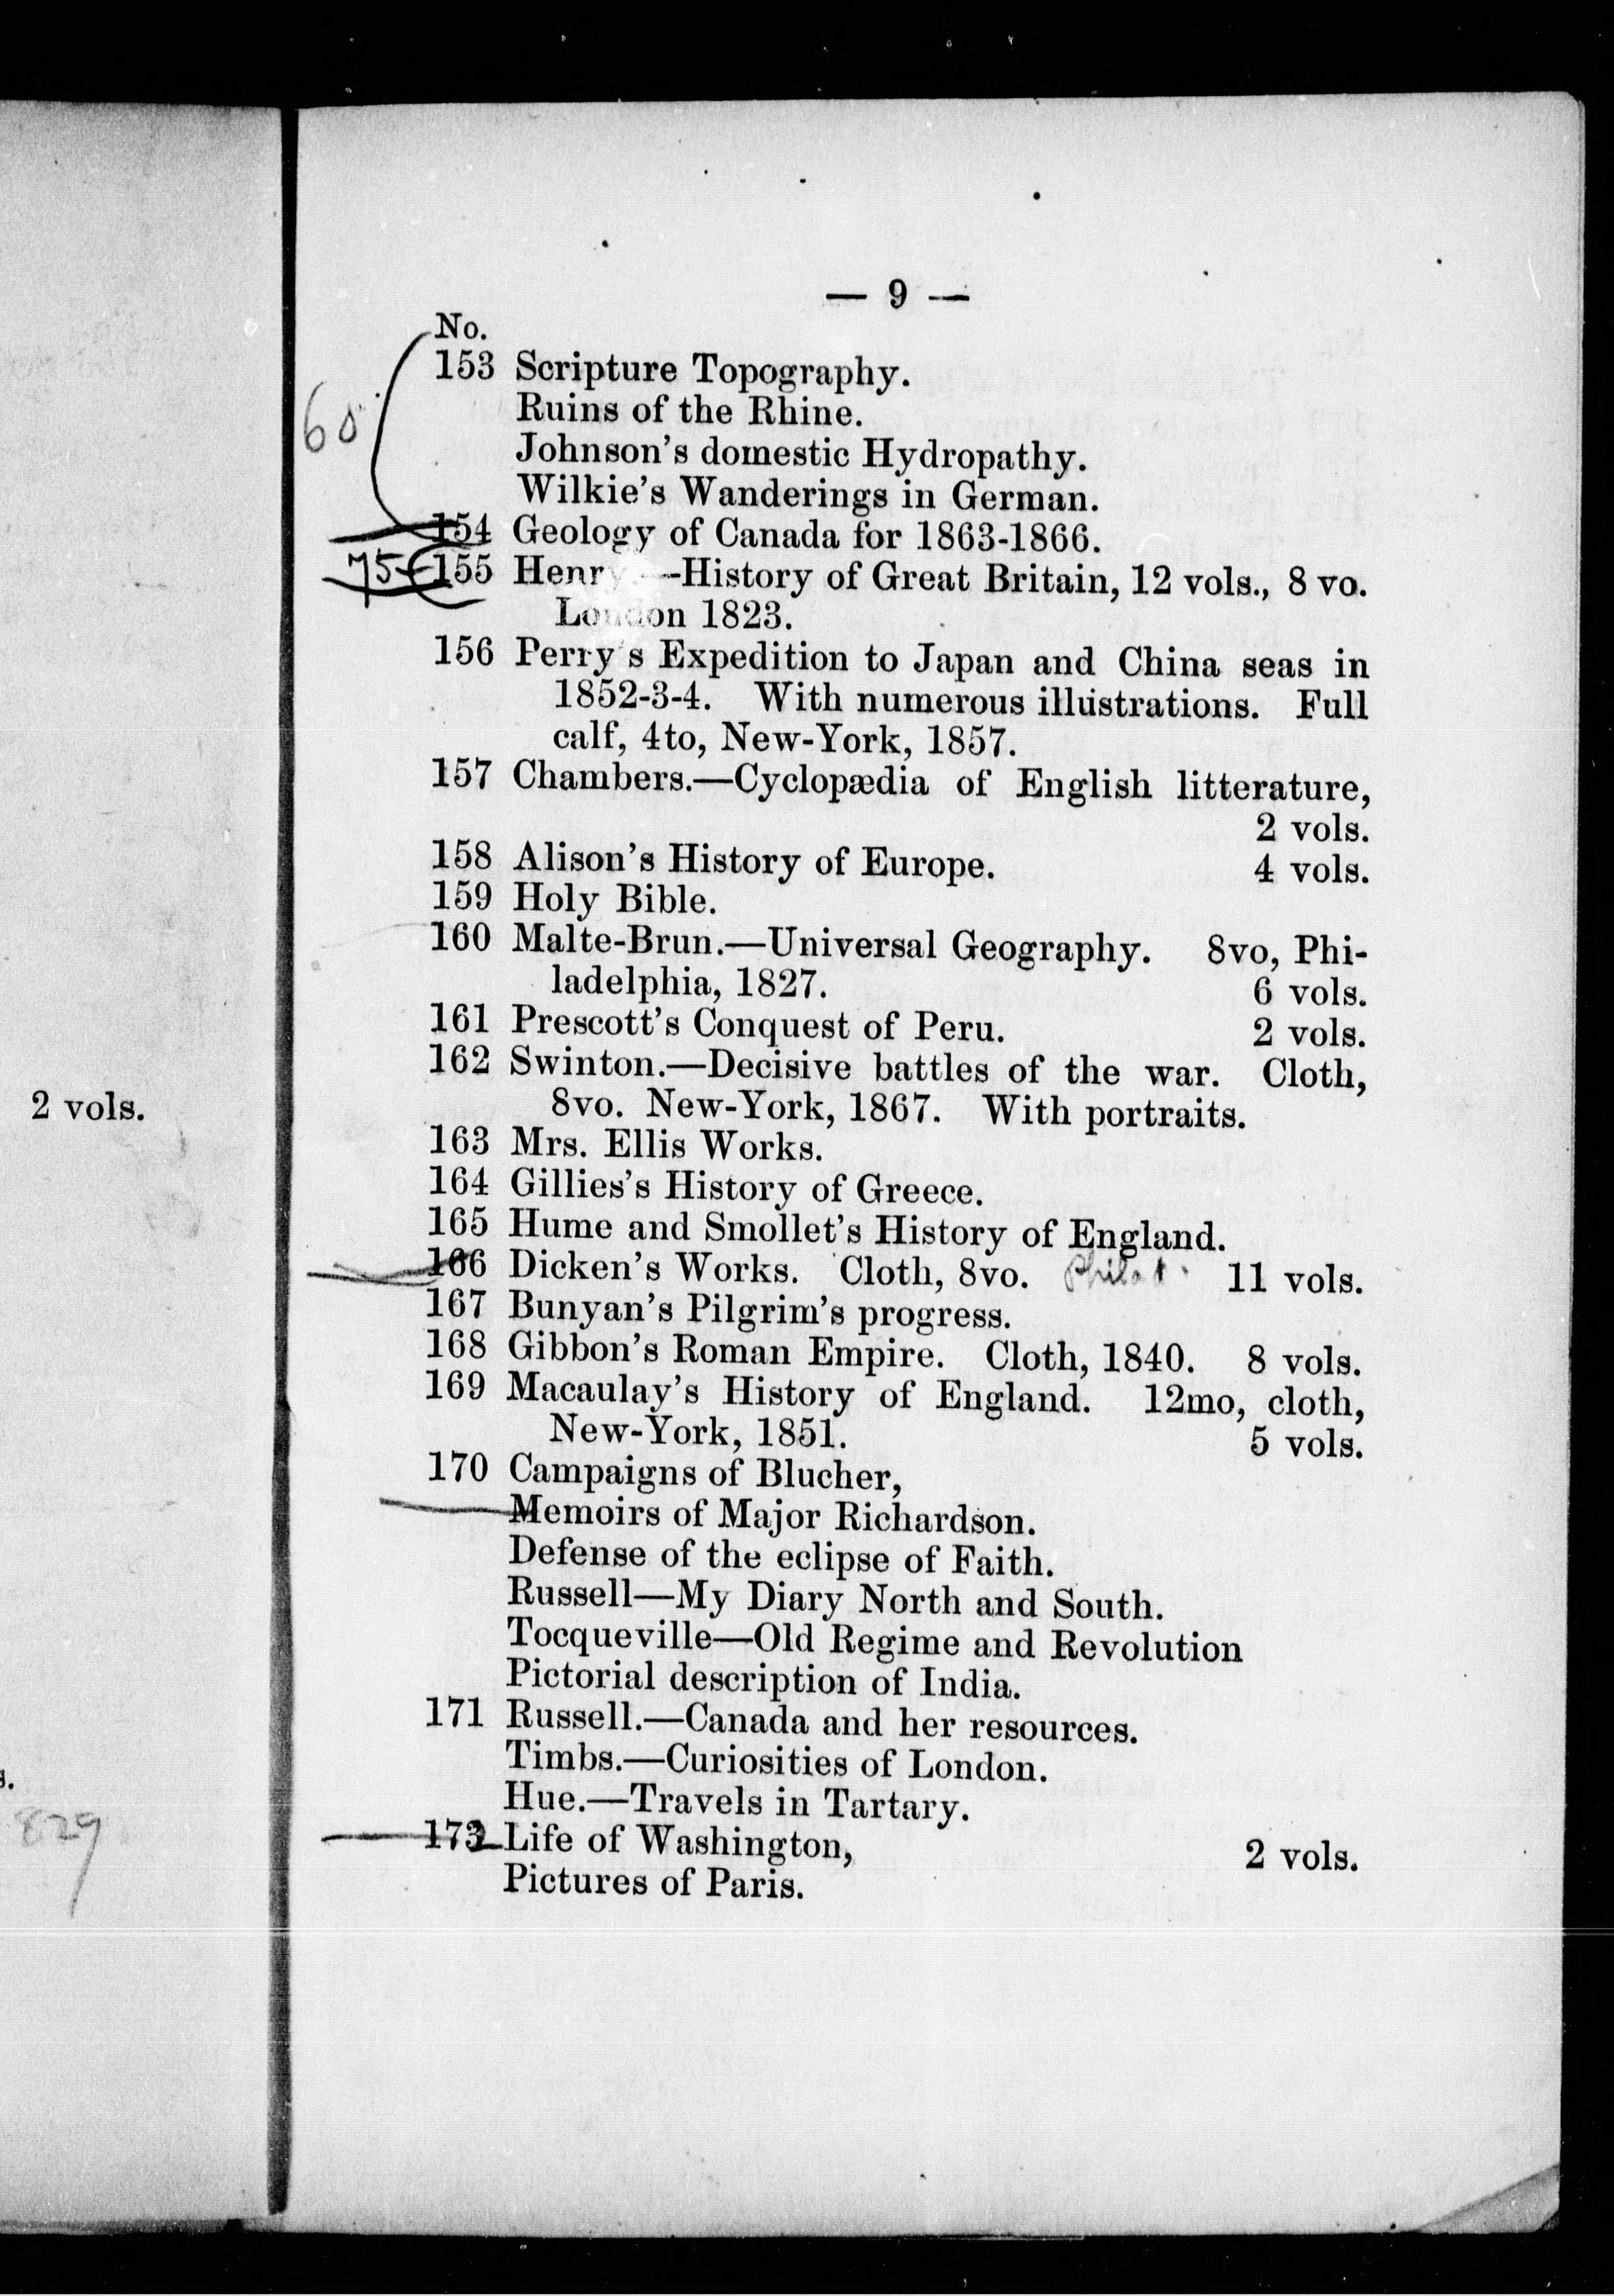 2 vols.
s.
829
— 9 —
No.
60
153 Scripture Topography.
Ruins of the Rhine.
Johnson's domestic Hydropathy.
Wilkie's Wanderings in German.
154 Geology of Canada for 1863-1866.
75 155 Henry.—History of Great Britain, 12 vols., 8 vo.
London 1823.
156 Perry's Expedition to Japan and China seas in
1852-3-4. With numerous illustrations. Full
calf, 4to, New-York, 1857.
157 Chambers.—Cyclopædia of English litterature,
2 vols.
158 Alison's History of Europe. 4 vols.
159 Holy Bible.
160 Malte-Brun.—Universal Geography. 8vo, Phi-
ladelphia, 1827. 6 vols.
161 Prescott's Conquest of Peru. 2 vols.
162 Swinton.—Decisive battles of the war. Cloth,
8vo. New-York, 1867. With portraits.
163 Mrs. Ellis Works.
164 Gillies's History of Greece.
165 Hume and Smollet's History of England.
166 Dicken's Works. Cloth, 8vo. Philad. 11 vols.
167 Bunyan's Pilgrim's progress.
168 Gibbon's Roman Empire. Cloth, 1840. 8 vols.
169 Macaulay's History of England. 12mo, cloth,
New-York, 1851. 5 vols.
170 Campaigns of Blucher,
Memoirs of Major Richardson.
Defense of the eclipse of Faith.
Russell—My Diary North and South.
Tocqueville—Old Regime and Revolution
Pictorial description of India.
171 Russell.—Canada and her resources.
Timbs.—Curiosities of London.
Hue.—Travels in Tartary.
172 Life of Washington, 2 vols.
Pictures of Paris.